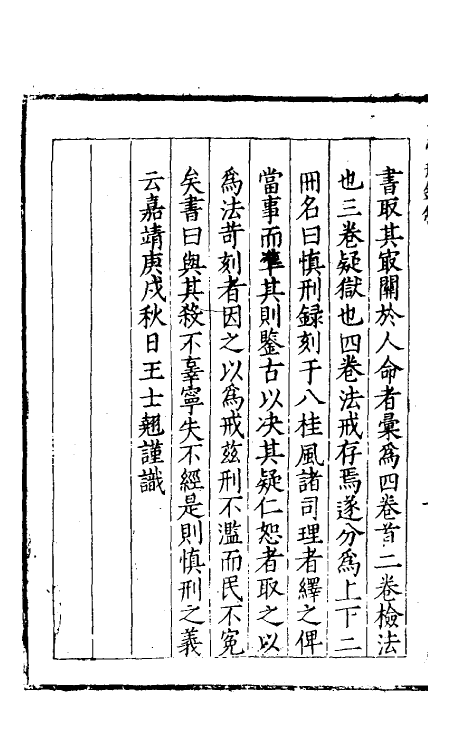 書取其㝡關於人命者彙爲四卷首二卷檢法
也三卷疑獄也四卷法戒存焉遂分爲上下二
冊名曰慎刑録刻于八桂風諸司理者繹之俾
當事而準其則鑒古以决其疑仁恕者取之以
爲法苛刻者因之以爲戒兹刑不濫而民不寃
矣書曰與其殺不辜寧失不經是則慎刑之義
云嘉靖庚戌秋日王士翹謹識